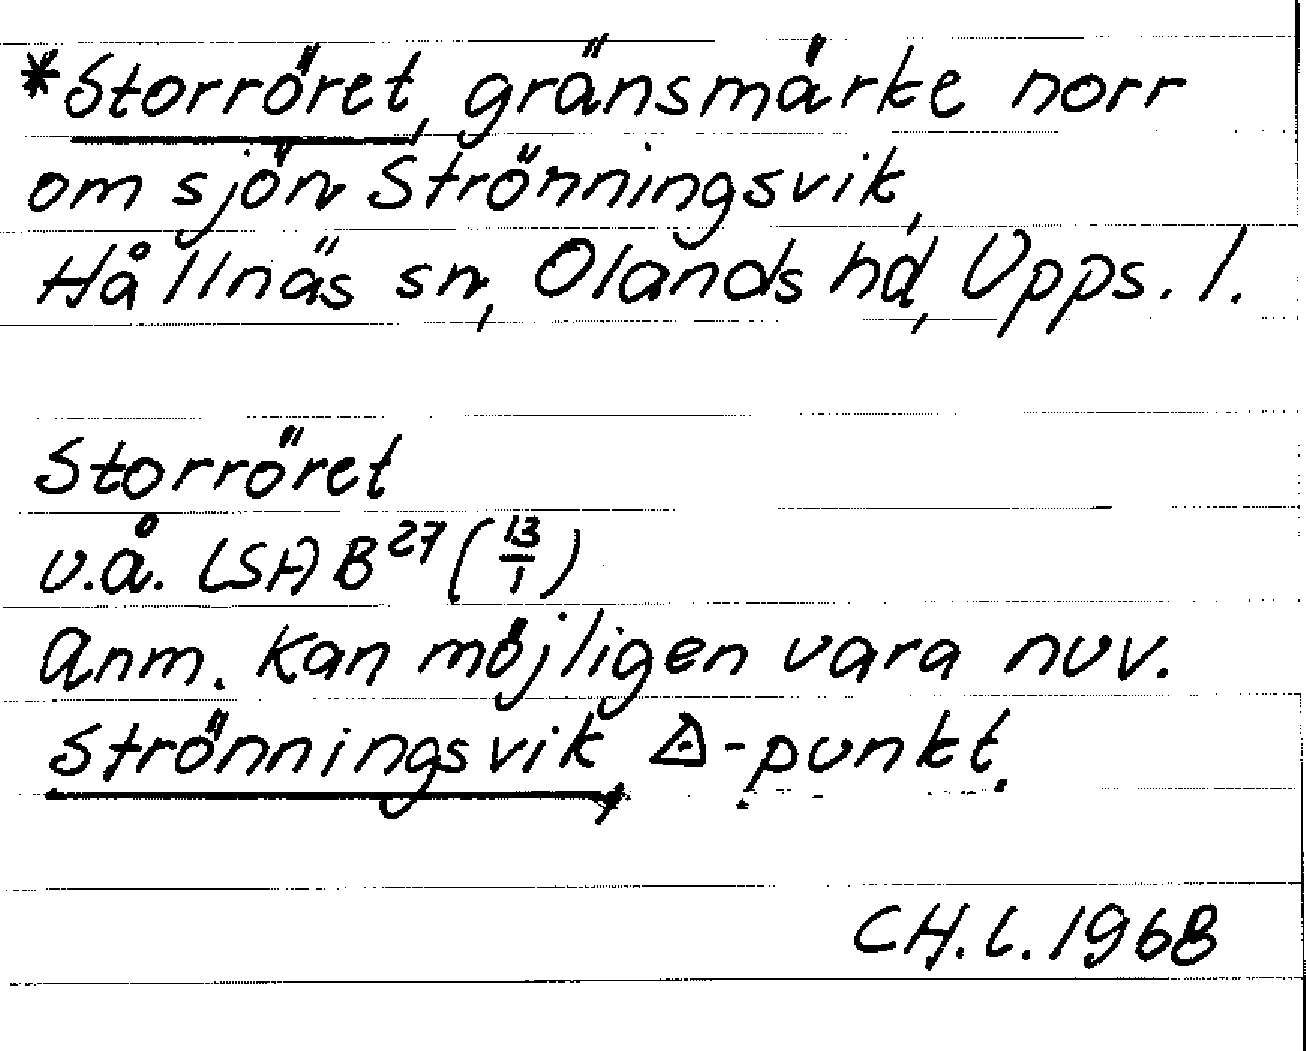 *Storröret, gränsmärke norr
om sjön Strönningsvik,
Hållnäs sn, Olands hd, Upps. l.
Storröret
u.å. LSA B27 (13/1)
Anm. Kan möjligen vara nuv.
Strönningsvik, △-punkt.
CH.L. 1968